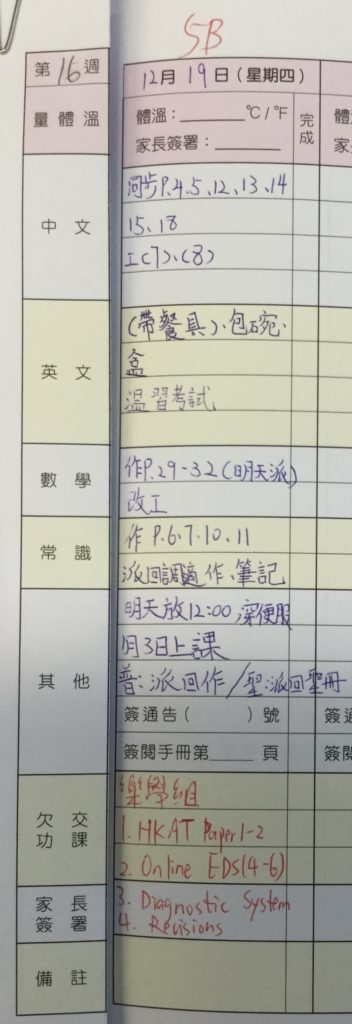 5B
第16週
12月19日(星期四)
量體溫
體溫：______℃/℉
家長簽署：______
完成
中文
同步P.4、5、12、13、14
15、18
工(7)、(8)
英文
(帶餐具)、包碗、
盒
溫習考試
數學
作P.29-32(明天派)
改工
常識
作 P.6、7、10、11
派回調適作、筆記
其他
明天放12:00 深便服
1月3日上課
普：派回作/聖：派回聖冊
簽通告( )號
簽閱手冊第____頁
欠交功課
樂學組
1. HKAT Paper 1-2
2. Online EDS(4-6)
家長簽署
3. Diagnostic System
4. Revisions
備註